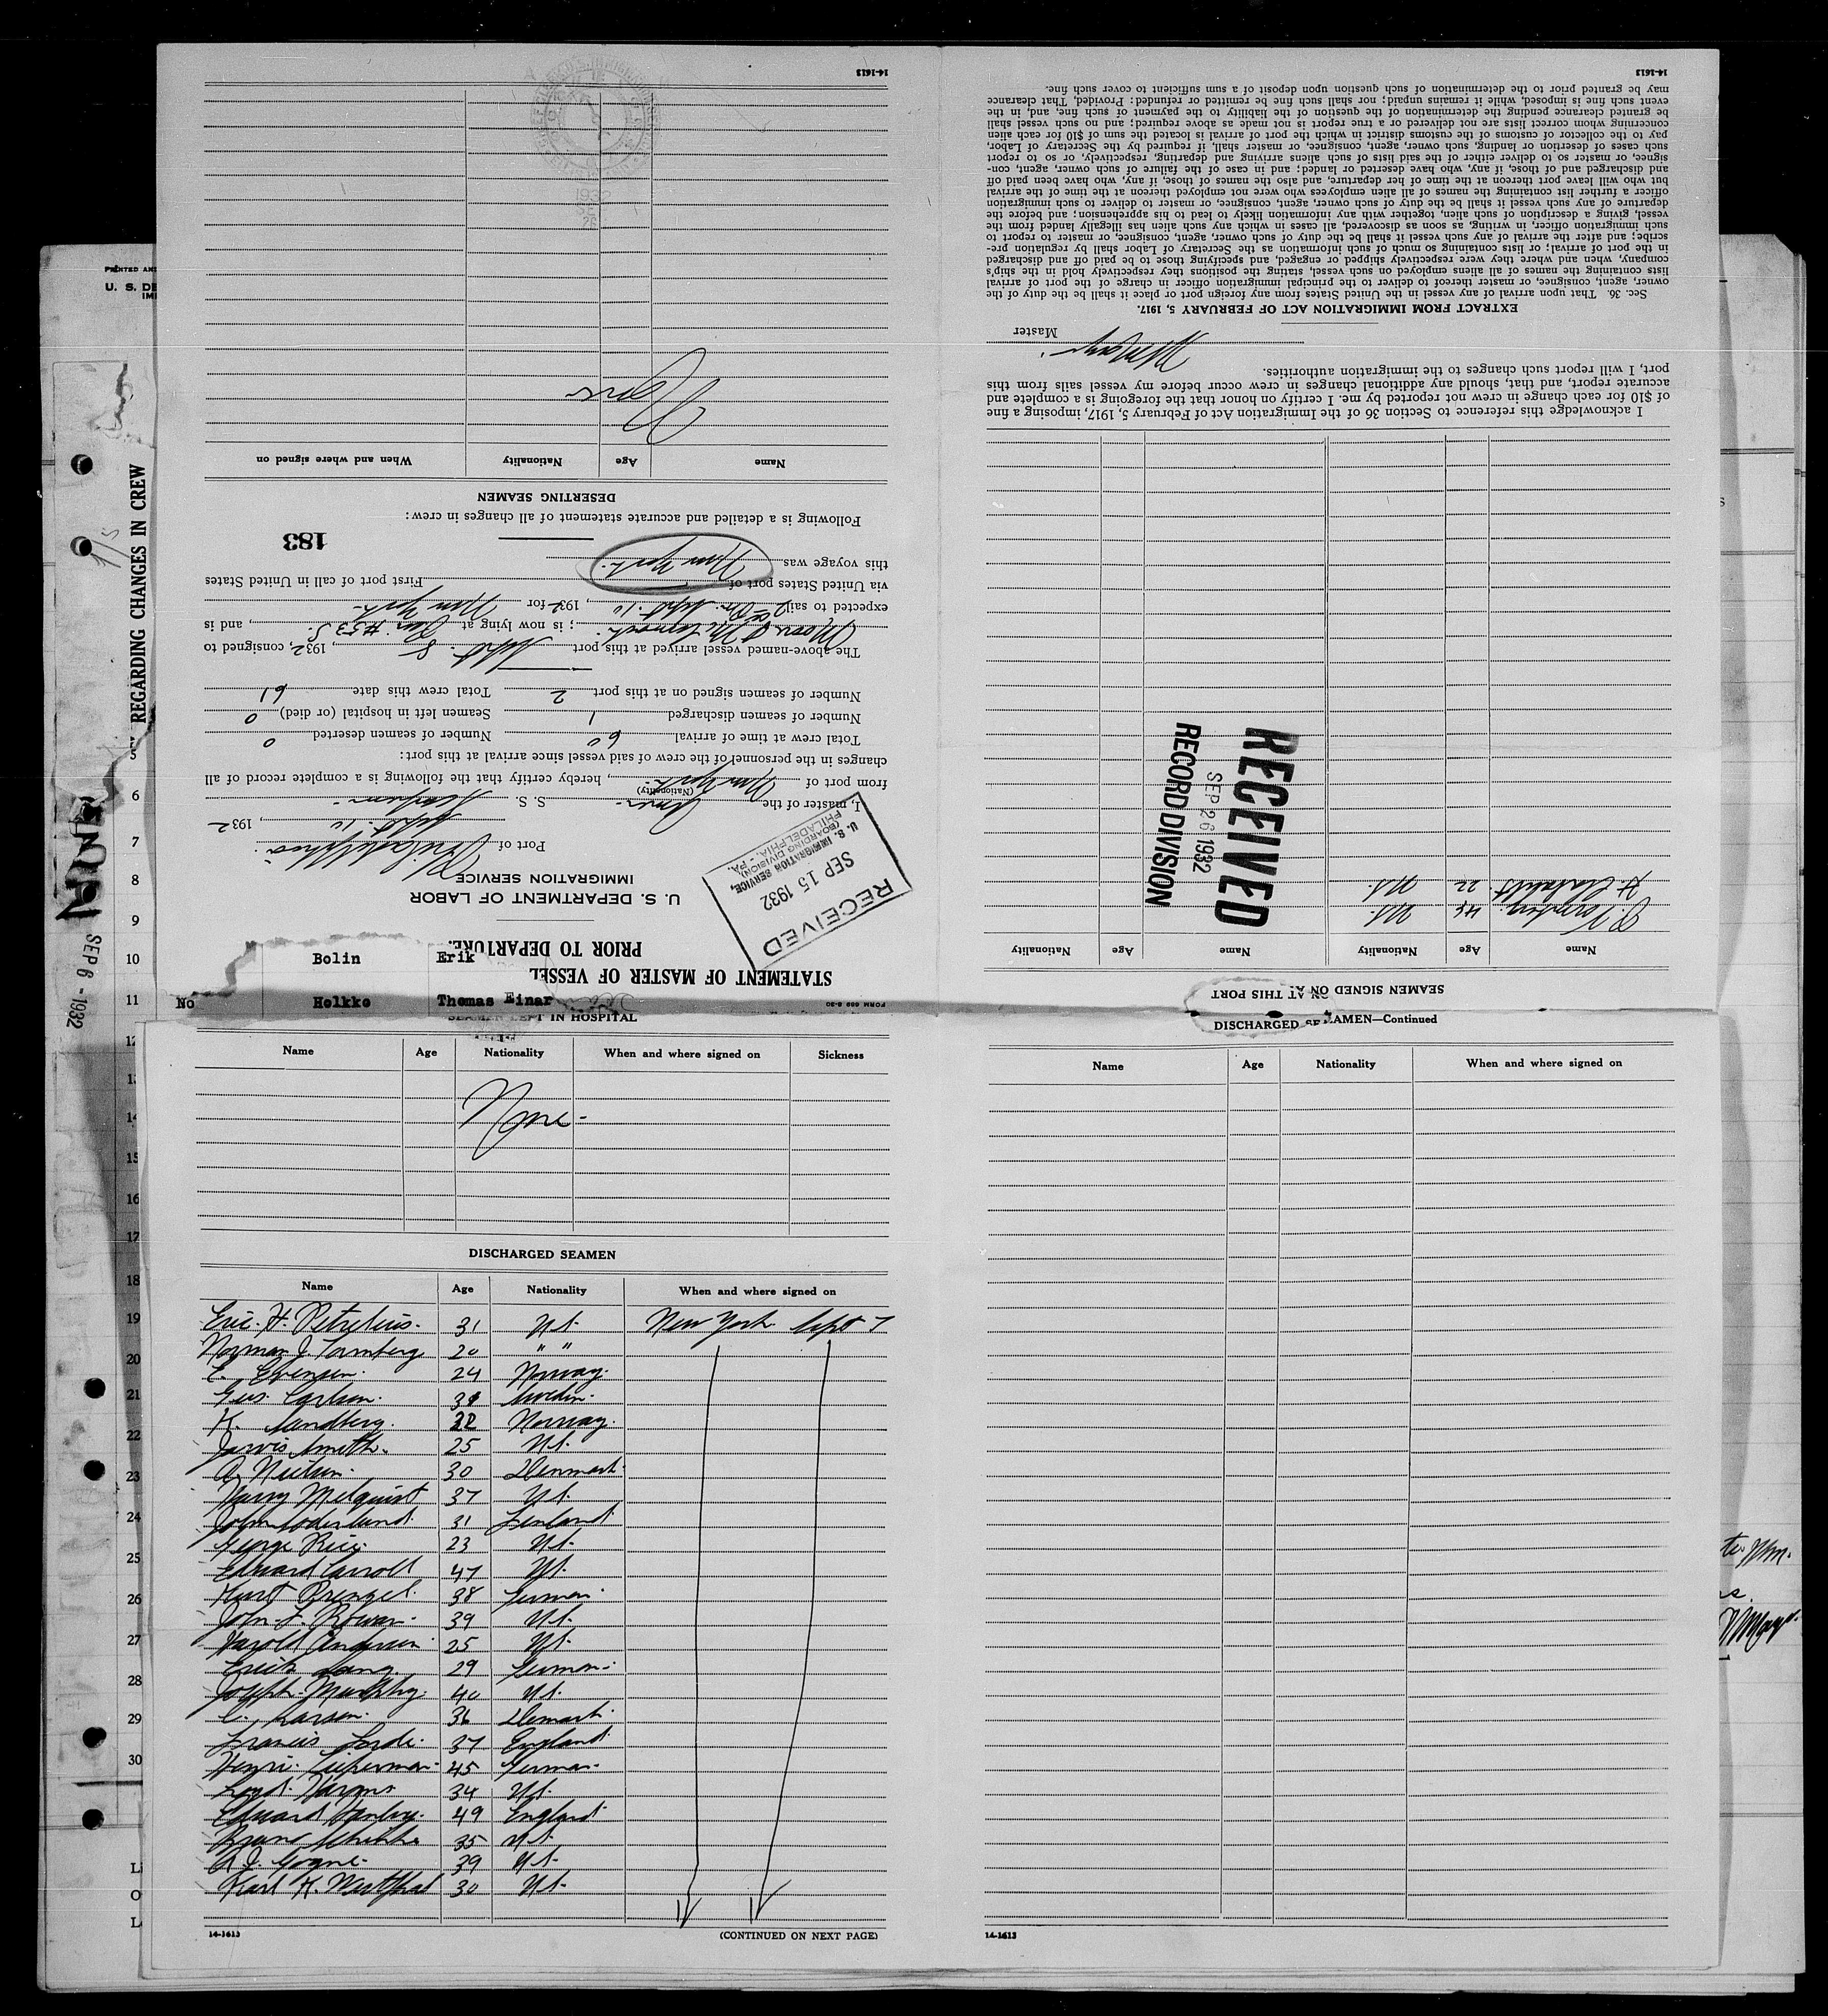 PRINTED AND
U. S. DE
IMI
REGARDING CHANGES IN CREW
SEP 6 - 1932
5
6
7
8
9
10
11
12
13
14
15
16
17
18
19
20
21
22
23
24
25
26
27
28
29
30
No
Bolin Erik
Helkko Thomas Einar
FORM 689 8-30
STATEMENT OF MASTER OF VESSEL
PRIOR TO DEPARTURE.
U. S. DEPARTMENT OF LABOR
IMMIGRATION SERVICE
RECEIVED
SEP 15 1932
U. S. IMMIGRATION SERVICE,
(BOARDING DIVISION)
PHILADELPHIA - PA.
Port of Philadelphia
Sept. 10, 1932
I, master of the Amer. S. S.
(Nationality)
from port of New York, hereby certify that the following is a complete record of all
changes in the personnel of the crew of said vessel since arrival at this port:
Total crew at time of arrival 60 Number of seamen deserted 0
Number of seamen discharged 1 Seamen left in hospital (or died) 0
Number of seamen signed on at this port 2 Total crew this date 61
The above-named vessel arrived at this port Sept. 8, 1932, consigned to
Moore & McCormack; is now lying at Pier #53 S., and is
expected to sail Sept. 10, 1932 for New York
via United States port of First port of call in United States
this voyage was New York.
183
Following is a detailed and accurate statement of all changes in crew:
DESERTING SEAMEN
Name Age Nationality When and where signed on
None
14-1613
SEAMEN SIGNED ON AT THIS PORT
Name Age Nationality Name Age Nationality
46 U.S.
22 U.S.
RECEIVED
SEP 26 1932
RECORD DIVISION
I acknowledge this reference to Section 36 of the Immigration Act of February 5, 1917, imposing a fine
of $10 for each change in crew not reported by me. I certify on honor that the foregoing is a complete and
accurate report, and that, should any additional changes in crew occur before my vessel sails from this
port, I will report such changes to the immigration authorities.
Master
EXTRACT FROM IMMIGRATION ACT OF FEBRUARY 5, 1917.
Sec. 36. That upon arrival of any vessel in the United States from any foreign port or place it shall be the duty of the
owner, agent, consignee, or master thereof to deliver to the principal immigration officer in charge of the port of arrival
lists containing the names of all aliens employed on such vessel, stating the positions they respectively hold in the ship's
company, when and where they were respectively shipped or engaged, and specifying those to be paid off and discharged
in the port of arrival; or lists containing so much of such information as the Secretary of Labor shall by regulation pre-
scribe; and after the arrival of any such vessel it shall be the duty of such owner, agent, consignee, or master to report to
such immigration officer, in writing, as soon as discovered, all cases in which any such alien has illegally landed from the
vessel, giving a description of such alien, together with any information likely to lead to his apprehension; and before the
departure of any such vessel it shall be the duty of such owner, agent, consignee, or master to deliver to such immigration
officer a further list containing the names of all alien employees who were not employed thereon at the time of the arrival
but who will leave port thereon at the time of her departure, and also the names of those, if any, who have been paid off
and discharged and of those, if any, who have deserted or landed; and in case of the failure of such owner, agent, con-
signee, or master so to deliver either of the said lists of such aliens arriving and departing, respectively, or so to report
such cases of desertion or landing, such owner, agent, consignee, or master shall, if required by the Secretary of Labor,
pay to the collector of customs of the customs district in which the port of arrival is located the sum of $10 for each alien
concerning whom correct lists are not delivered or a true report is not made as above required; and no such vessel shall
be granted clearance pending the determination of the question of the liability to the payment of such fine, and, in the
event such fine is imposed, while it remains unpaid; nor shall such fine be remitted or refunded: Provided, That clearance
may be granted prior to the determination of such question upon deposit of a sum sufficient to cover such fine.
14-1613
SEAMEN LEFT IN HOSPITAL
Name Age Nationality When and where signed on Sickness
None -
DISCHARGED SEAMEN
Name Age Nationality When and where signed on
Eric. H. Petrelius. 31 U.S. New York Sept 7
Norman J. Tornberg 20 " "
E. Evensen. 24 Norway.
Gus. Carlson. 31 Sweden.
K. Sandberg. 22 Norway.
Jarvis Smith. 25 U.S.
A. Nielsen. 30 Denmark.
Harry Melquist 37 U.S.
John Soderlund. 31 Finland
George Rice. 23 U.S.
Edward Carroll 47 U.S.
Kurt Prengel. 38 German.
John. F. Rowan. 39 U.S.
Harold Anderson 25 U.S.
Erich Lang. 29 German.
Joseph. Murphy. 40 U.S.
C. Larsen. 36 Demark
Francis Forde. 37 England
Henri. 45 German.
Loyd. 34 U.S.
Edward 49 England
Bruno 35 U.S.
A. J. 39 U.S.
Karl K. Westphal 30 U.S.
14-1613
(CONTINUED ON NEXT PAGE)
DISCHARGED SEAMEN—Continued
Name Age Nationality When and where signed on
14-1613